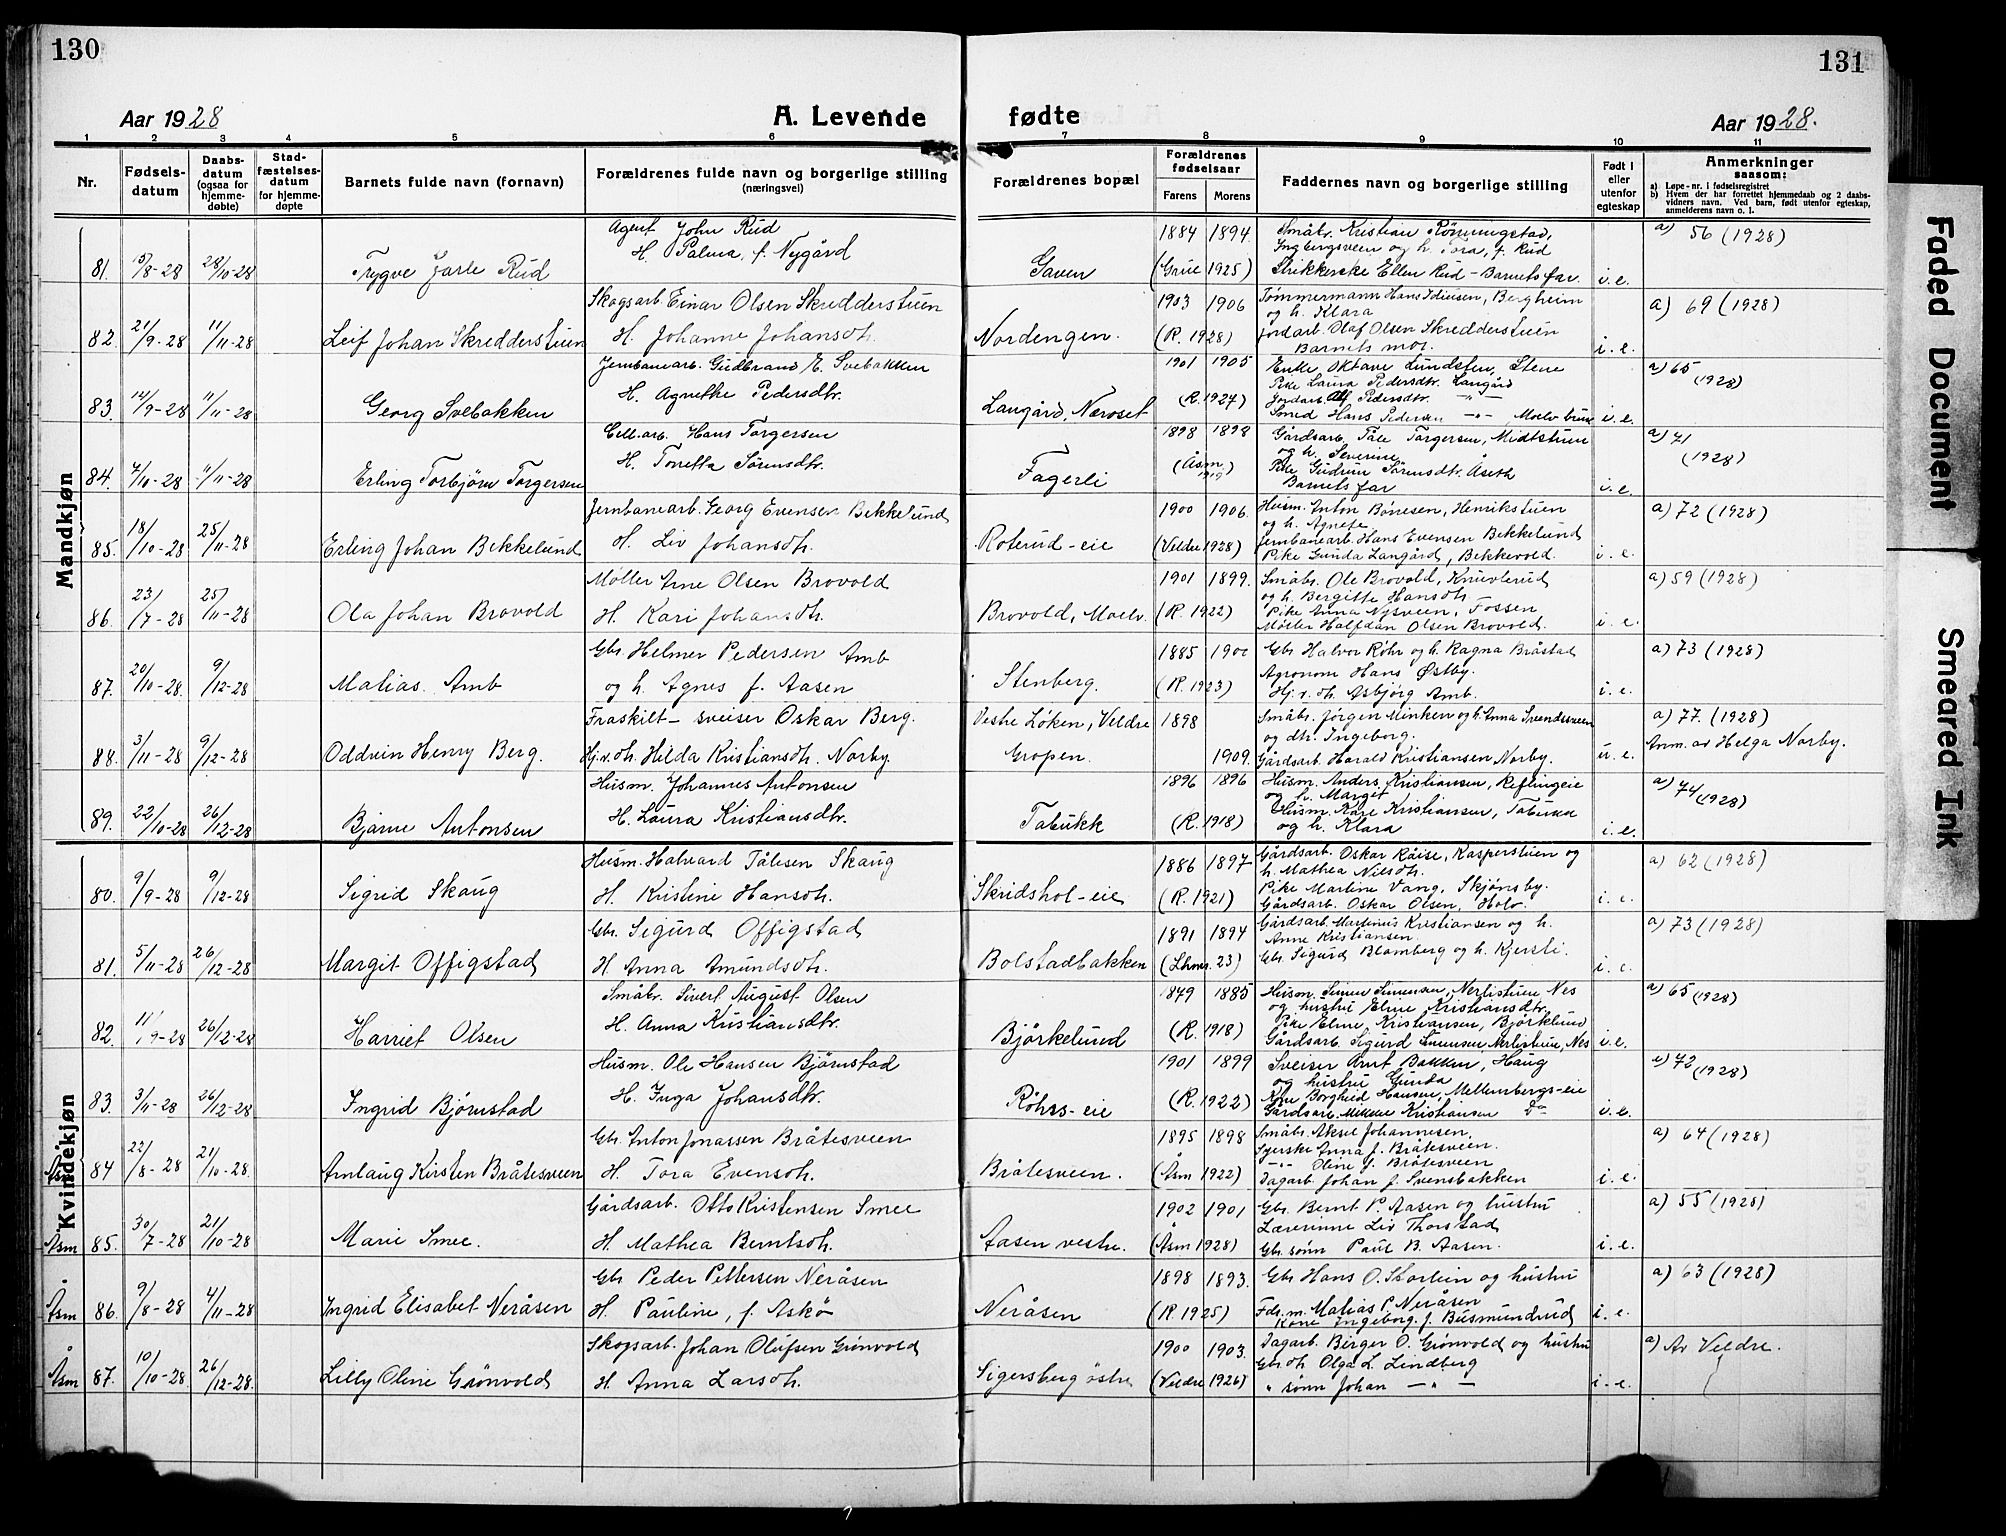 130
131
Aar 1928
A. Levende
fødte
Aar 1928.
1 2 3 4 5 6 7 8 9 10 11
Nr.
Fødsels-
datum
Daabs-
datum
(ogsaa for
hjemme-
døbte)
Stad-
fæstelses-
datum
for hjemme-
døpte
Barnets fulde navn (fornavn)
Forældrenes fulde navn og borgerlige stilling
(næringsvei)
Forældrenes bopæl
Forældrenes
fødselsaar
Farens Morens
Faddernes navn og borgerlige stilling
Født i
eller
utenfor
egteskap
Anmerkninger
saasom:
a) Løpe-nr. i fødselsregistret
b) Hvem der har forrettet hjemmedaab og 2 daabs-
vidners navn. Ved barn, født utenfor egteskap,
anmelderens navn o. l.
Mandkjøn
Agent John Rud 1884 1894 Småbr. Kristian Rønningstad, a) 56 (1928)
H. Palma, f. Nygård Ingbergsveen og h. Tora, f. Rud
81. 5/8-28 28/10-28 Trygve Jarle Rud Gaven (Grue 1925) Strikkerske Ellen Rud - Barnets far. i. e.
Skogsarb. Einar Olsen Skredderstuen 1903 1906 Tømmermann Hans Idiusen, Bergheim a) 69 (1928)
og h. Klara
82. 21/9-28 11/11-28 Leif Johan Skredderstuen H. Johanne Johansdh. Nordengen. (R. 1928) Jordarb. Olaf Olsen Skredderstuen
Barnets mor. i. e.
Jernbanearb. Gudbrand E. Svebakken 1901 1905 Enke Oktave Lundsten, Stene a) 65
Pike Laura Pedersdtr. Langård (1928)
H. Agnethe Pedersdtr. (R. 1924) Jordarb. Alf Pedersdtr. -"-
83. 14/9-28 11/11-28 Georg Svebakken Langård, Næroset Smed Hans Pedersen -"- Moelv bruk i. e.
Cell.arb. Hans Torgersen 1898 1898 Gårdsarb. Tåle Torgersen, Midtstuen a) 71
og h. Severine (1928)
H. Torretta Sørensdtr. (Åsm. 1919) Pike Gudrun Sørensdtr. Åseth
84. 7/10-28 11/11-28 Erling Torbjørn Torgersen Fagerli Barnets far i. e.
Jernbanearb. Georg Evensen Bekkelund 1900 1906. Husm. Anton Bonesen, Henrikstuen a) 72 (1928)
og h. Agnete
85. 18/10-28 25/11-28 Erling Johan Bekkelund H. Liv Johansdh. Roterud-eie (Veldre 1928) Jernbanearb. Hans Evensen Bekkelund
Pike Gunda Langård, Bekkevold. i. e.
Møller Arne Olsen Brovold 1901 1899. Småbr. Ole Brovold, Knuvlerud a) 59 (1928)
og h. Bergitte Hansdh.
86. 23/7-28 25/11-28 Ola Johan Brovold H. Kari Johansdh. Brovold, Moelv. (R. 1922) Pike Anna Nysveen, Fossen
Møller Halfdan Olsen Brovold. i. e.
Gbr Helmer Pedersen Amb 1885 1900 Gbr Halvor Røhr og h. Ragna Bråstad a) 73 (1928)
Agronom Hans Østby.
87. 20/10-28. 9/12-28 Matias. Amb og h. Agnes f. Aasen Stenberg. (R. 1923) Hj.v.dh. Asbjørg Amb. i. e.
Fraskilt - sveiser Oskar Berg. Vestre Løken, Veldre 1898 Småbr. Jørgen Minken og h. Anna Svendssveen a) 77. (1928)
og dh. Ingeborg.
88. 3/11-28 9/12-28 Oddvin Henry Berg. Hj.v.dh. Hilda Kristiansdh. Norby. Gropen. 1909. Gårdsarb. Harald Kristiansen Norby. u. e. Anm. av Helga Norby.
Husm. Johannes Antonsen 1896 1896 Husm. Anders Kristiansen, Reflingeie a) 74 (1928)
og h. Margit
H. Laura Kristiansdtr. Husm. Kåre Kristiansen, Tabukk
89. 22/10-28 26/12-28 Bjarne Antonsen Tabukk (R. 1918) og h. Klara i. e.
Kvindekjøn
Husm. Halvard Tålesen Skaug 1886 1897 Gårdsarb. Oskar Råise, Kasperstuen og a) 62 (1928)
h. Mathea Nilsdh.
80. 9/9-28 9/12-28 Sigrid Skaug H. Kristine Hansdh. Skridshol-eie (R. 1921) Pike Martine Vang, Skjønsby.
Gårdsarb. Oskar Olsen, Holo. i. e.
Gbr. Sigurd Offigstad 1891 1894 Gårdsarb. Martinus Kristiansen og h. a) 73 (1928)
Anne Kristiansen.
81. 5/11-28 26/12-28 Margit Offigstad H Anna Amundsdh. Bolstadbakken (Lhmr. 23) Gbr. Sigurd Blomberg og h. Kjersti. i. e.
Småbr. Sivert August Olsen 1879 1885 Husm. Simen Simensen, Nerlistuen Nes a) 65 (1928)
og hustru Eline Kristiansdtr.
H. Anna Kristiansdtr. Pike Eline Kristiansen, Bjørklund
82. 11/9-28 26/12-28 Harriet Olsen Bjørkelund (R. 1918) Gårdsarb. Sigurd Simensen Nerlistuen, Nes i. e.
Husm. Ole Hansen Bjørnstad 1901 1899 Sveiser Arnt Bakken, Haug a) 72 (1928)
og hustru Gunda
H. Inga Johansdtr. Kone Borghild Hansen, Mellumbergs-eie
83. 3/11-28 26/12-28 Ingrid Bjørnstad Røhrs-eie (R. 1922) Gårdsarb. Mikkel Kristiansen Do i. e.
Gbr. Anton Jonassen Bråtesveen 1895 1898 Småbr. Aksel Johannesen, a) 64 (1928)
Syerske Anna f. Bråtesveen.
Åsm 84 22/8-28 21/10-28. Arnlaug Kirsten Bråtesveen H. Tora Evensdh. Bråtesveen. (Åsm 1922) -"- Oline f. Bråtesveen
Dagarb. Johan f. Svensbakken i. e.
Gårdsarb. Otto Kristensen Smee 1902 1901 Gbr. Bernt P. Aasen og hustru a) 55 (1928)
Lærerinne Liv Thorstad
Åsm 85. 30/7-28 21/10-28 Marie Smee. H. Mathea Berntsdh. Aasen vestre. (Åsm 1928) Gbr sønn Paul B. Aasen. i. e.
Gbr Peder Pettersen Neråsen 1898 1893. Gbr Hans O. Storlien og hustru a) 63 (1928)
Åsm 86. 9/8-28 4/11-28 Ingrid Elisabet Neråsen H. Pauline, f. Askø Neråsen (R. 1925) Fdr.m. Matias P. Neråsen
Kone Ingeborg f. Busmundrud i. e.
Skogsarb. Johan Olufsen Grønvold 1900 1903. Dagarb. Birger O. Grønvold og hustru a) Av Veldre.
Gbr dh. Olga L. Lindberg
Åsm 87. 10/10-28. 26/12-28. Lilly Oline Grønvold H. Anna Larsdh. Sigersberg østre (Veldre 1926) " sønn Johan -"- i. e.
Faded Document
Smeared Ink